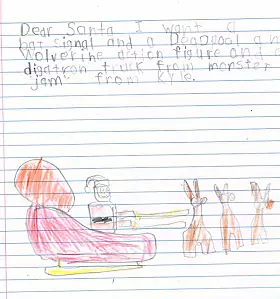 Dear Santa I want a
bat signal and a DeaDpool an
Wolverine action figure and a
digatron truck from monster
jam from Kyle.